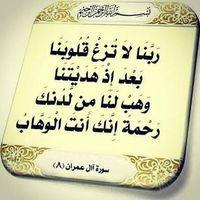 بسم الله الرحمن الرحيم
رَبَّنَا لَا تُزِغْ قُلُوبَنَا
بَعْدَ إِذْ هَدَيْتَنَا
وَهَبْ لَنَا مِن لَّدُنكَ
رَحْمَةً إِنَّكَ أَنتَ الْوَهَّابُ
سورة آل عمران (٨)